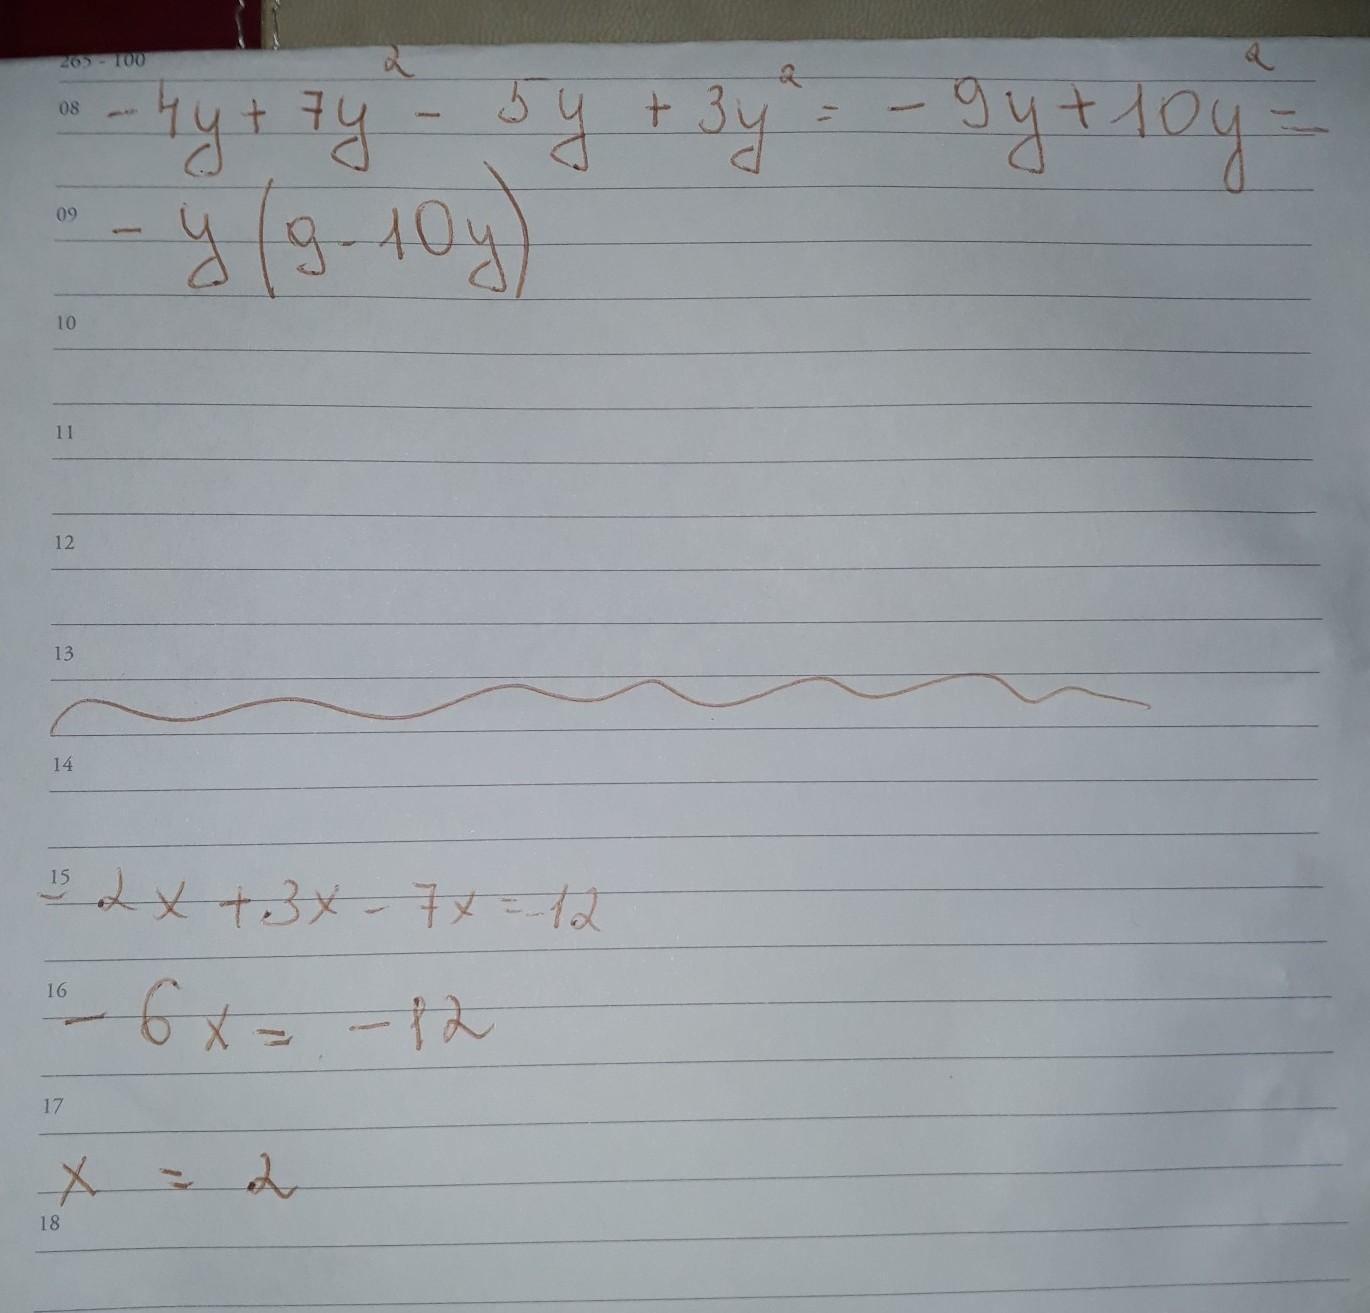 265 - 100
08 - 4y + 7y² - 5y + 3y² = - 9y + 10y² =
09 - y (9 - 10y)
10
11
12
13
14
15 - 2x + 3x - 7x = -12
16 - 6x = - 12
17
x = 2
18